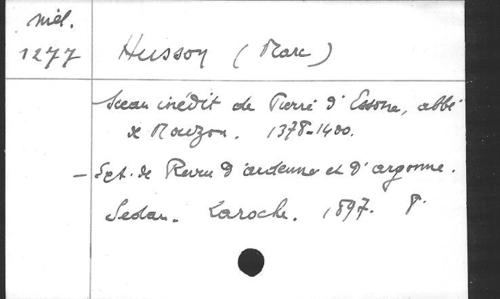 mél.
1277
Husson (Marc)
Sceau inédit de Pierre d'Essone, abbé
de Mouzon. 1378-1400.
— Ext. de Revue d'ardenne et d'argonne.
Sedan. Laroche. 1897. P.